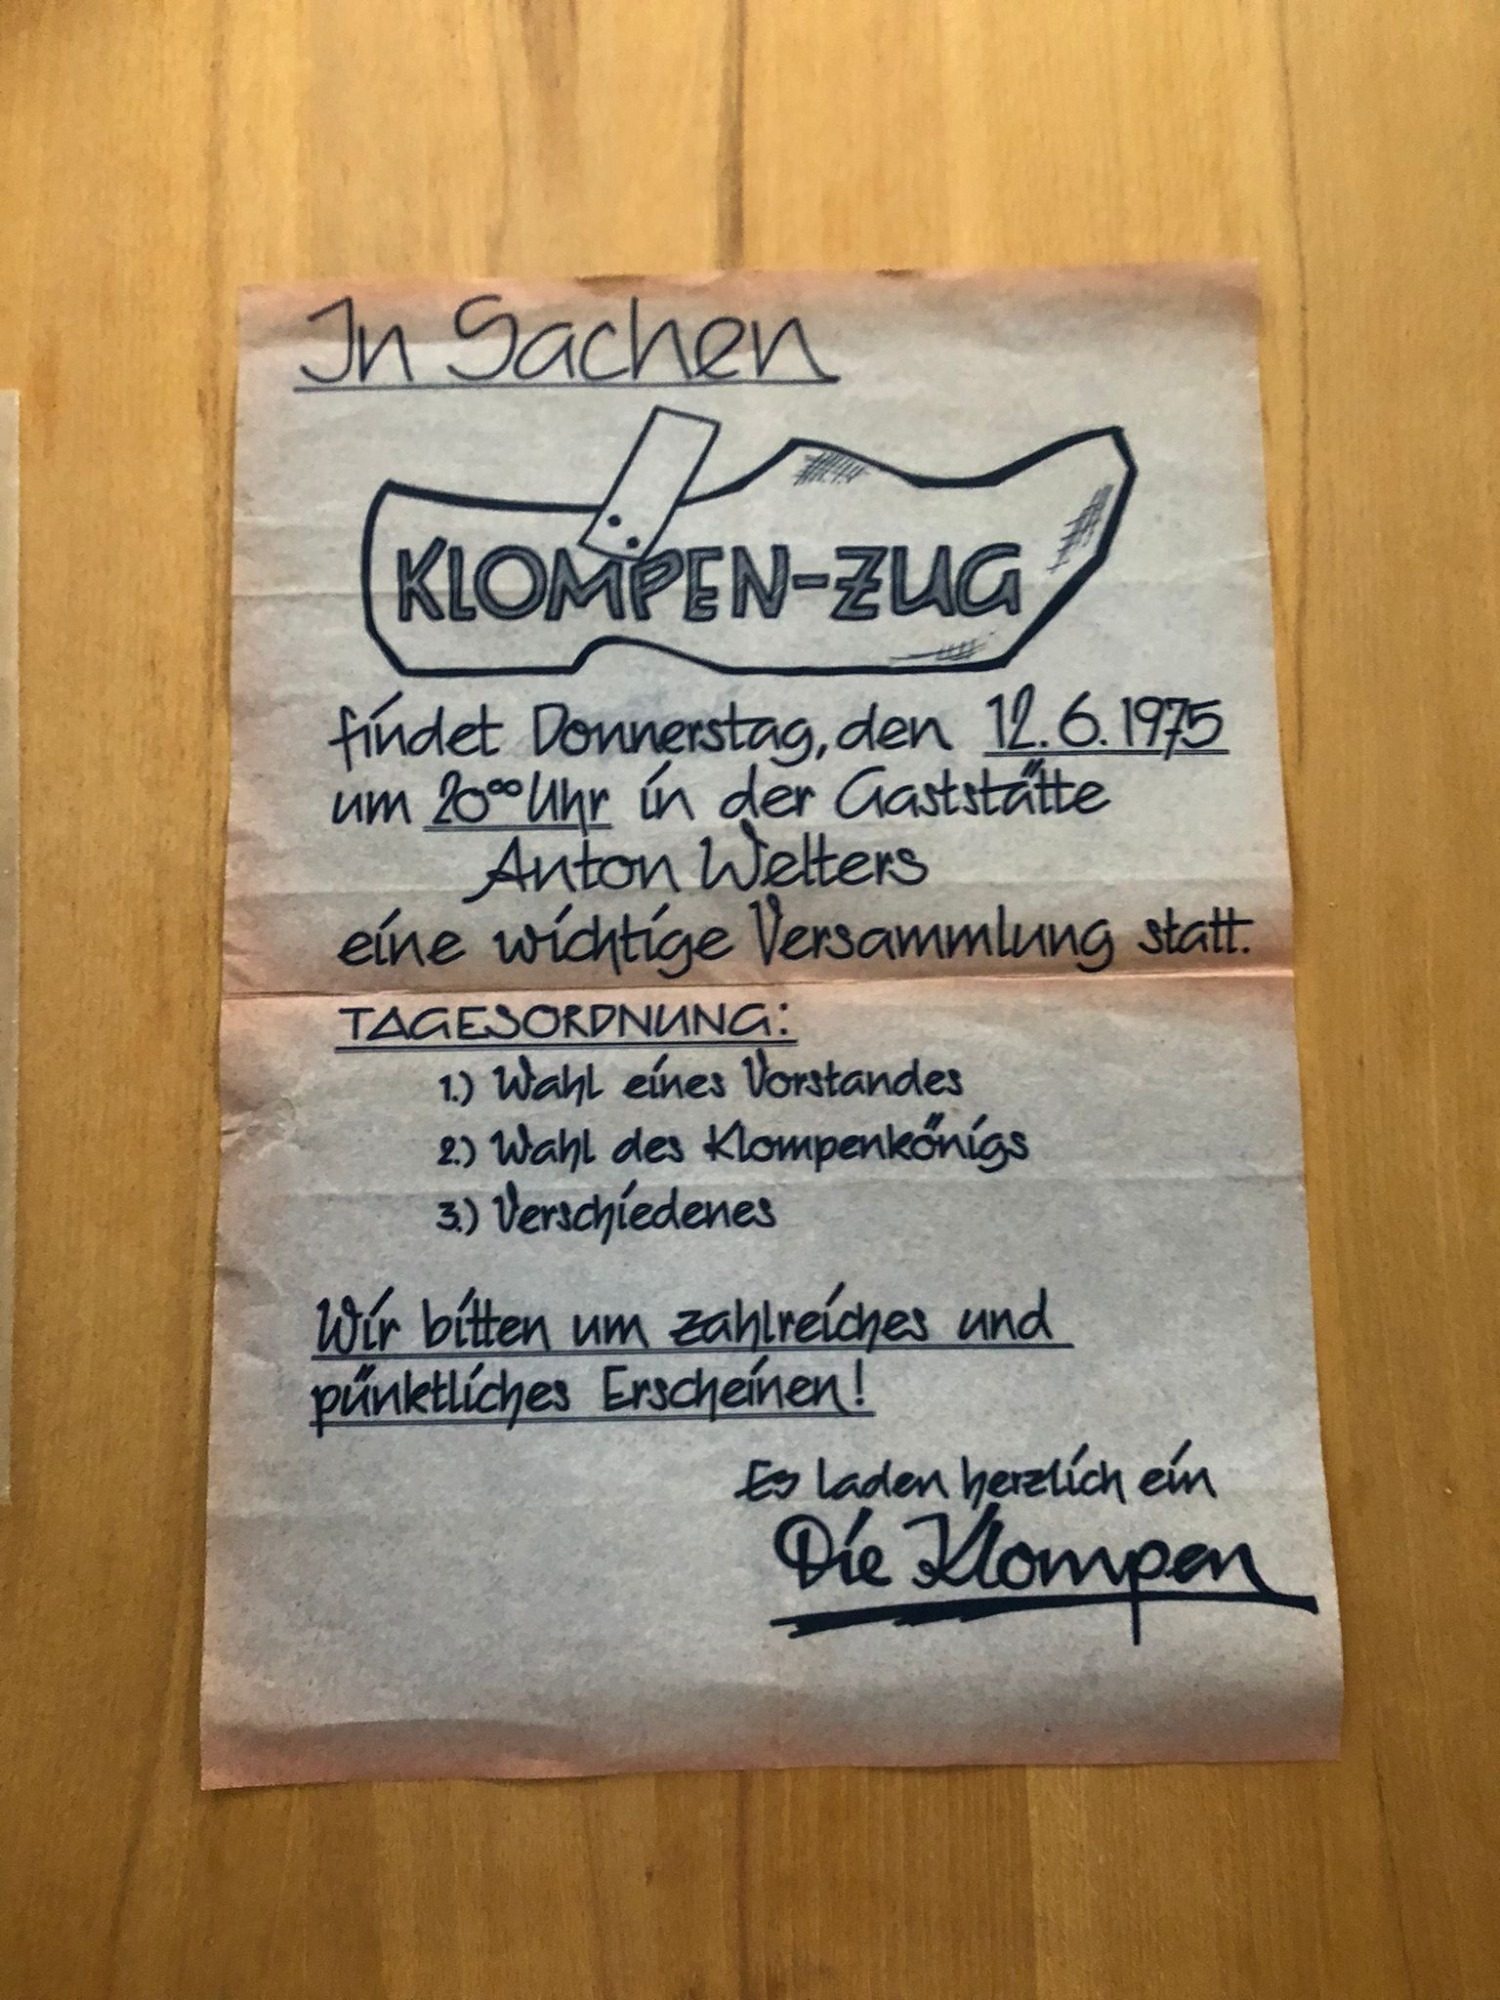 In Sachen
KLOMPEN-ZUG
findet Donnerstag, den 12.6.1975
um 20⁰⁰ Uhr in der Gaststätte
Anton Welters
eine wichtige Versammlung statt.
TAGESORDNUNG:
1.) Wahl eines Vorstandes
2.) Wahl des Klompenkönigs
3.) Verschiedenes
Wir bitten um zahlreiches und
pünktliches Erscheinen!
Es laden herzlich ein
Die Klompen